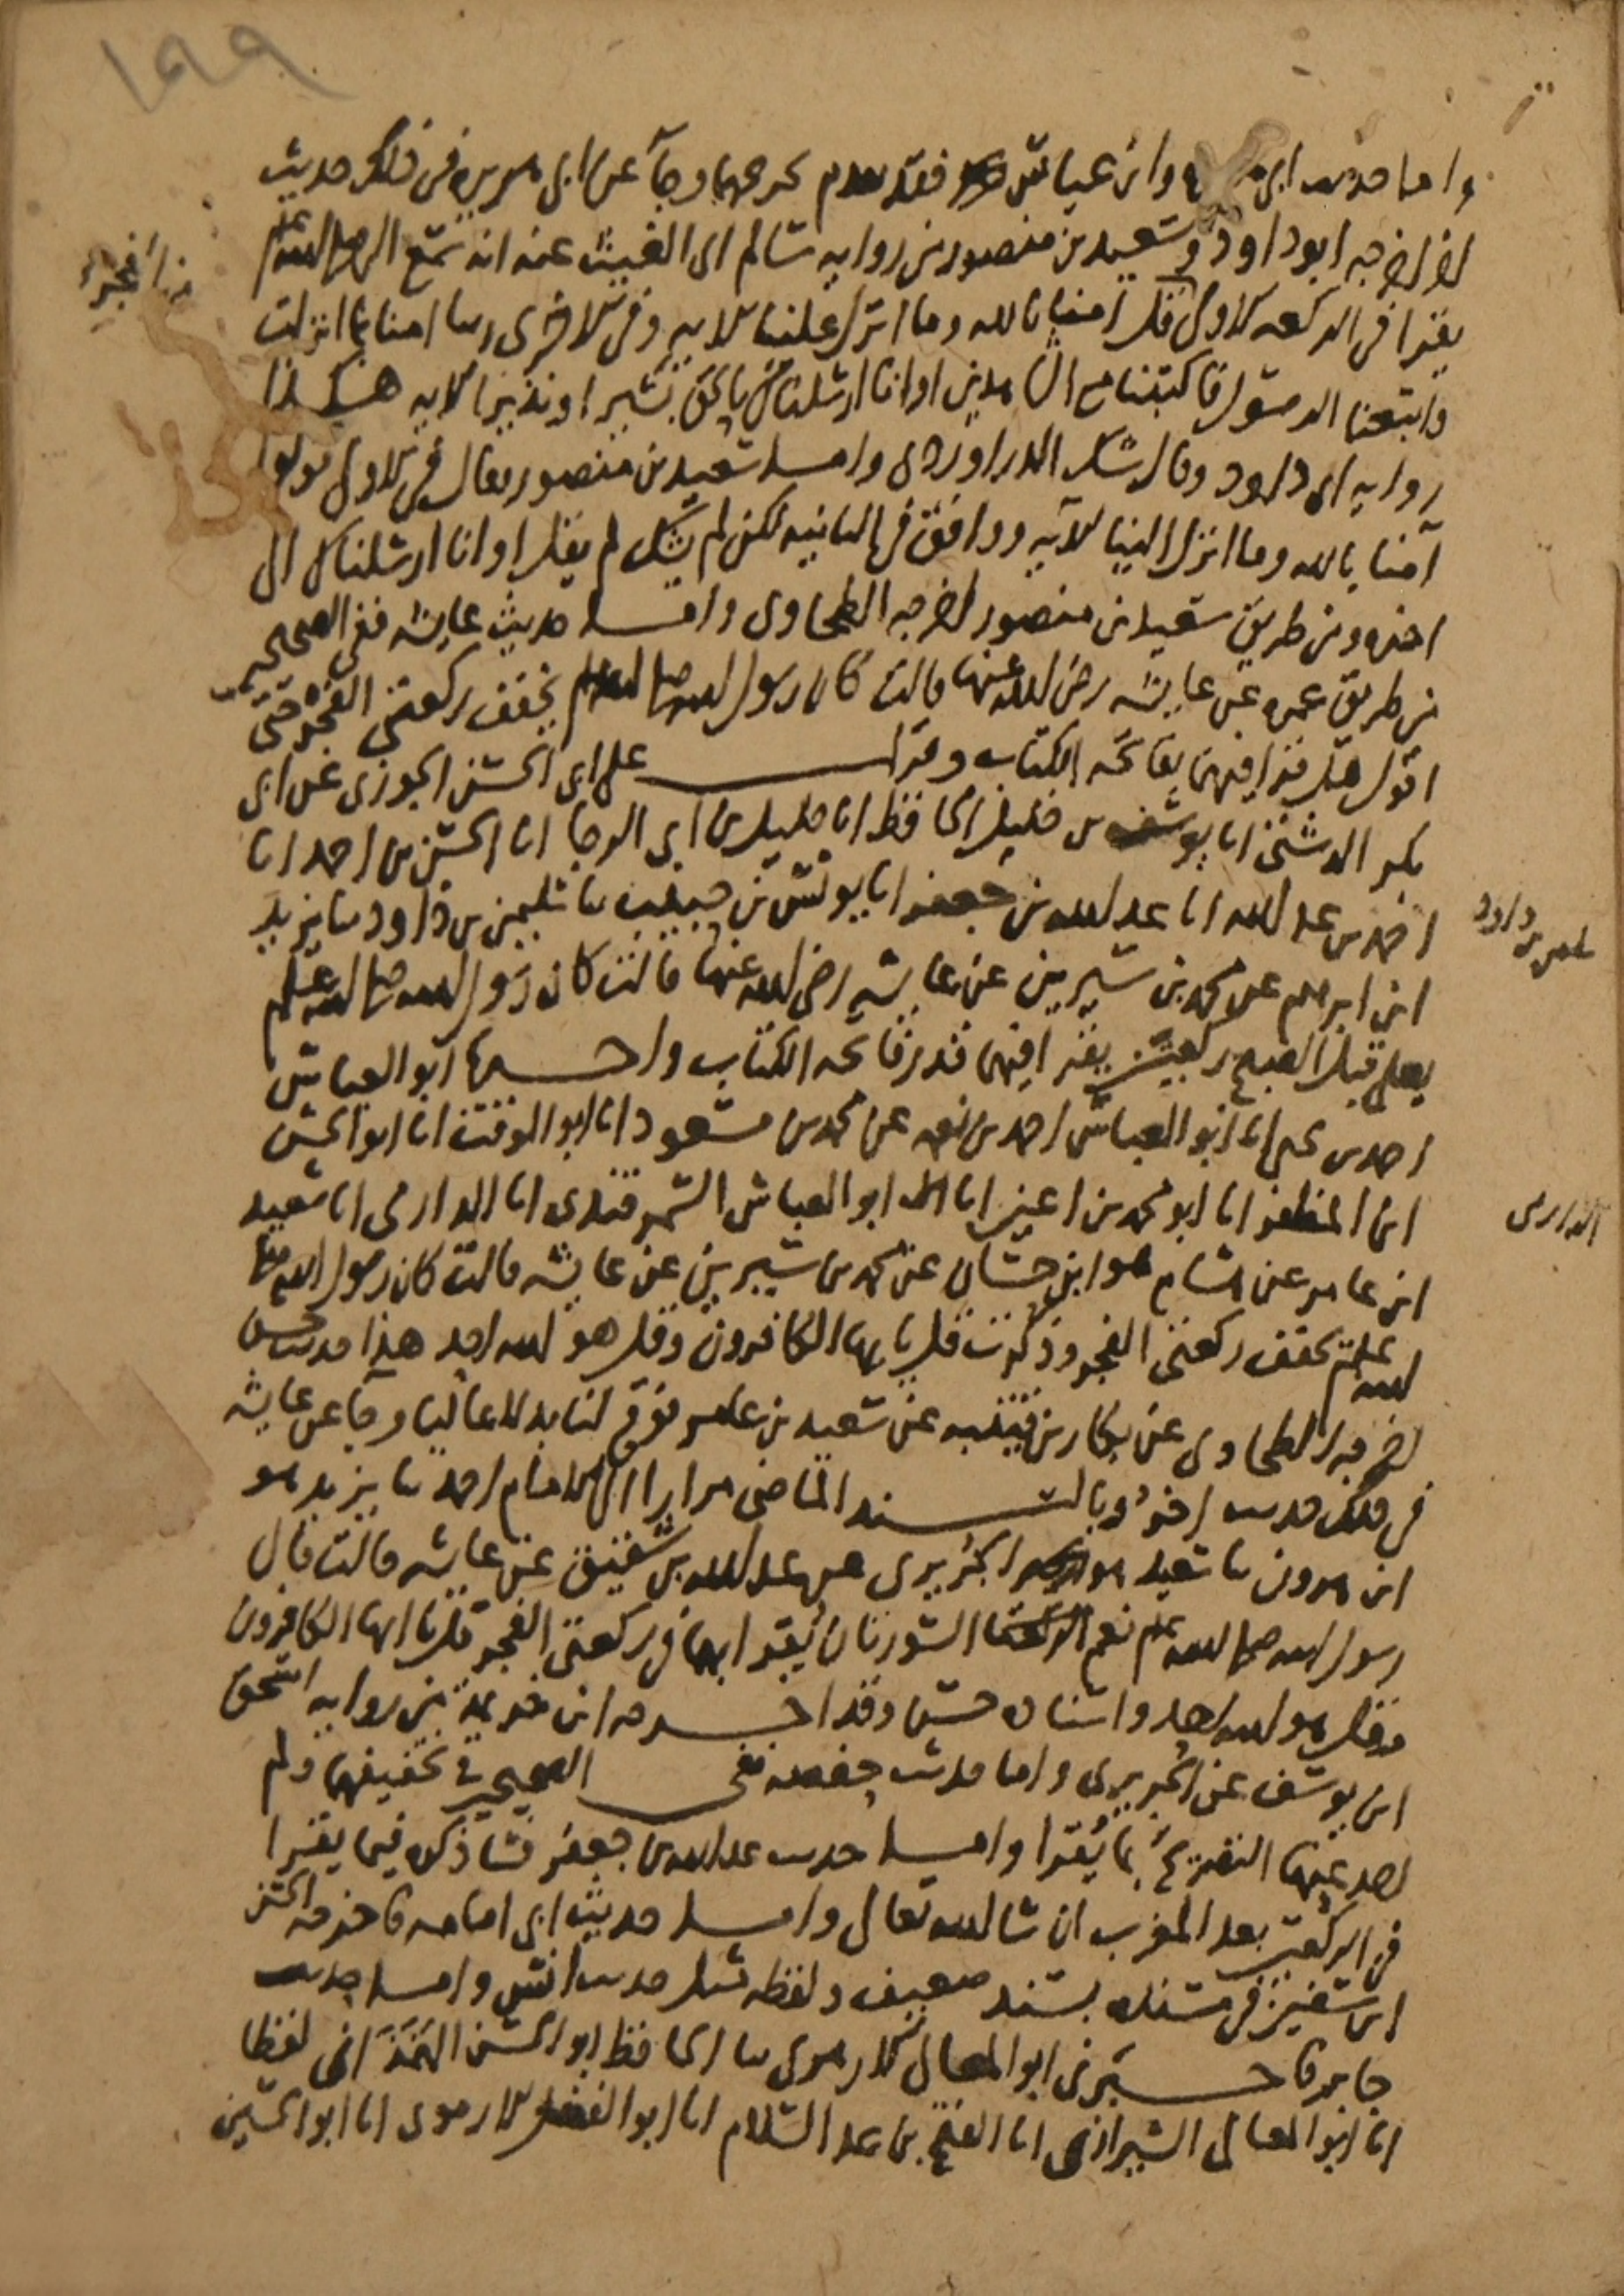 ١٩٩
واما حديث ابي هريرة وابن عباس فقد تقدم تخريجهما وجاء عن ابي هريرة في ذلك حديث
اخر اخرجه ابو داود وسعيد بن منصور من رواية سالم ابي الغيث عنه انه سمع النبي صلى الله عليه وسلم
يقرا في الركعة الاولى قل امنا بالله وما انزل علينا الاية وفي الاخرى ربنا امنا بما انزلت
واتبعنا الرسول فاكتبنا مع الشاهدين او انا ارسلناك بالحق بشيرا ونذيرا الاية هكذا
رواية ابي داود وقال شك الدراوردي واما سعيد بن منصور فقال في الاولى قولوا
آمنا بالله وما انزل الينا الآية ووافق في الثانية لكن لم يشك لم يقل او انا ارسلناك الى
اخره ومن طريق سعيد بن منصور اخرجه الطحاوي واما حديث عايشة ففي الصحيحين
من طريق عمرة عن عايشة رضي الله عنها قالت كان رسول الله صلى الله عليه وسلم يخفف ركعتي الفجر حتى
اقول هل قرا فيهما بفاتحة الكتاب وقرات على ابي الحسن الجوزي عن ابي
بكر الدشتي انا يوسف بن خليل الحافظ انا خليل بن ابي الرجا انا الحسن بن احمد انا
احمد بن عبد الله انا عبد الله بن جعفر انا يونس بن حبيب نا سليمن بن داود نا يزيد
ابن ابرهيم عن محمد بن سيرين عن عايشة رضي الله عنها قالت كان رسول الله صلى الله عليه وسلم
يصلي قبل الصبح ركعتين يقرا فيهما قدر فاتحة الكتاب واخبرنا ابو العباس
احمد بن علي انا ابو العباس احمد بن نعمة عن محمد بن مسعود انا ابو الوقت انا ابو الحسن
ابن المظفر انا ابو محمد بن اعين انا ابو العباس السمرقندي انا الدارمي انا سعيد
ابن عامر عن هشام هو ابن حسان عن محمد بن سيرين عن عايشة قالت كان رسول الله صلى
الله عليه وسلم يخفف ركعتي الفجر وذكرت قل يا يها الكافرون وقل هو الله احد هذا حديث حسن
اخرجه الطحاوي عن بكار بن قتيبة عن سعيد بن عامر فوقع لنا بدلا عاليا وجاء عن عايشة
في ذلك حديث اخر وبالسند الماضي مرارا الى الامام احمد نا يزيد هو
ابن هرون نا سعيد هو الجريري عن عبد الله بن شقيق عن عايشة قالت قال
رسول الله صلى الله عليه وسلم نعم السورتان يقرا بهما في ركعتي الفجر قل يا ايها الكافرون
وقل هو الله احد واسناده حسن وقد اخرجه ابن خزيمة من رواية اسحق
ابن يوسف عن الجريري واما حديث حفصة ففي الصحيحين في تخفيفهما ولم
اجد عنها التصريح بما يقرا واما حديث عبد الله بن جعفر فساذكره فيما يقرا
في الركعتين بعد المغرب ان شا الله تعالى واما حديث ابي امامة فاخرجه الحسن
ابن سفين في مسنده بسند ضعيف ولفظه مثل حديث انس واما حديث
جابر فاخبرني ابو المعالي الارموي نا الحافظ ابو الحسن الهمداني لفظا
انا ابو المعالي الشيرازي انا الفتح بن عبد السلام انا ابو الفضل الارموي انا ابو الحسين
سليمن بن داود
الدارمي